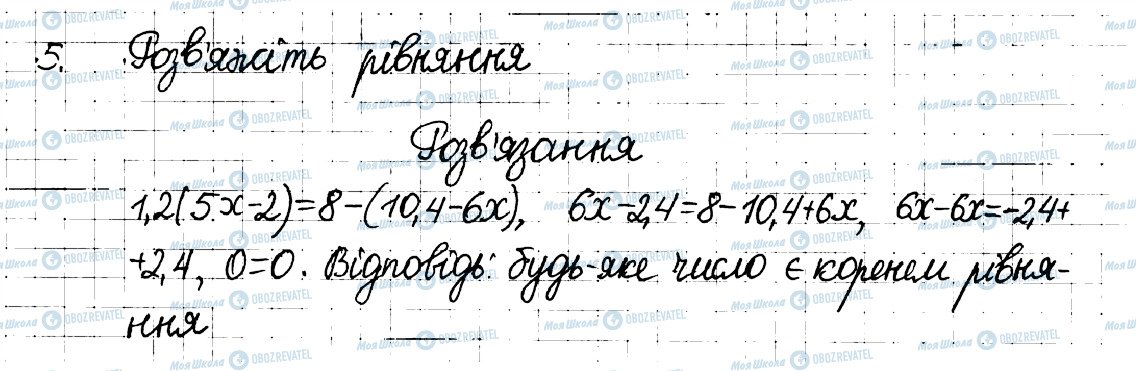 5. Розв'яжіть рівняння
Розв'язання
1,2(5x-2)=8-(10,4-6x), 6x-2,4=8-10,4+6x, 6x-6x=-2,4+
+2,4, 0=0. Відповідь: будь-яке число є коренем рівня-
ння